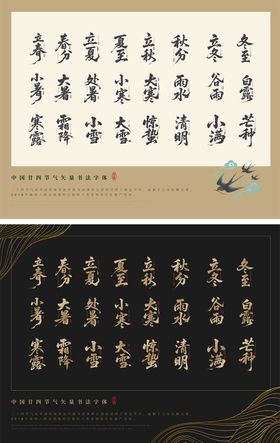 立春 春分 立夏 夏至 立秋 秋分 立冬 冬至
小暑 大暑 处暑 小寒 大寒 雨水 谷雨 白露
寒露 霜降 小雪 大雪 惊蛰 清明 小满 芒种
中国廿四节气矢量书法字体
立春 春分 立夏 夏至 立秋 秋分 立冬 冬至
小暑 大暑 处暑 小寒 大寒 雨水 谷雨 白露
寒露 霜降 小雪 大雪 惊蛰 清明 小满 芒种
中国廿四节气矢量书法字体